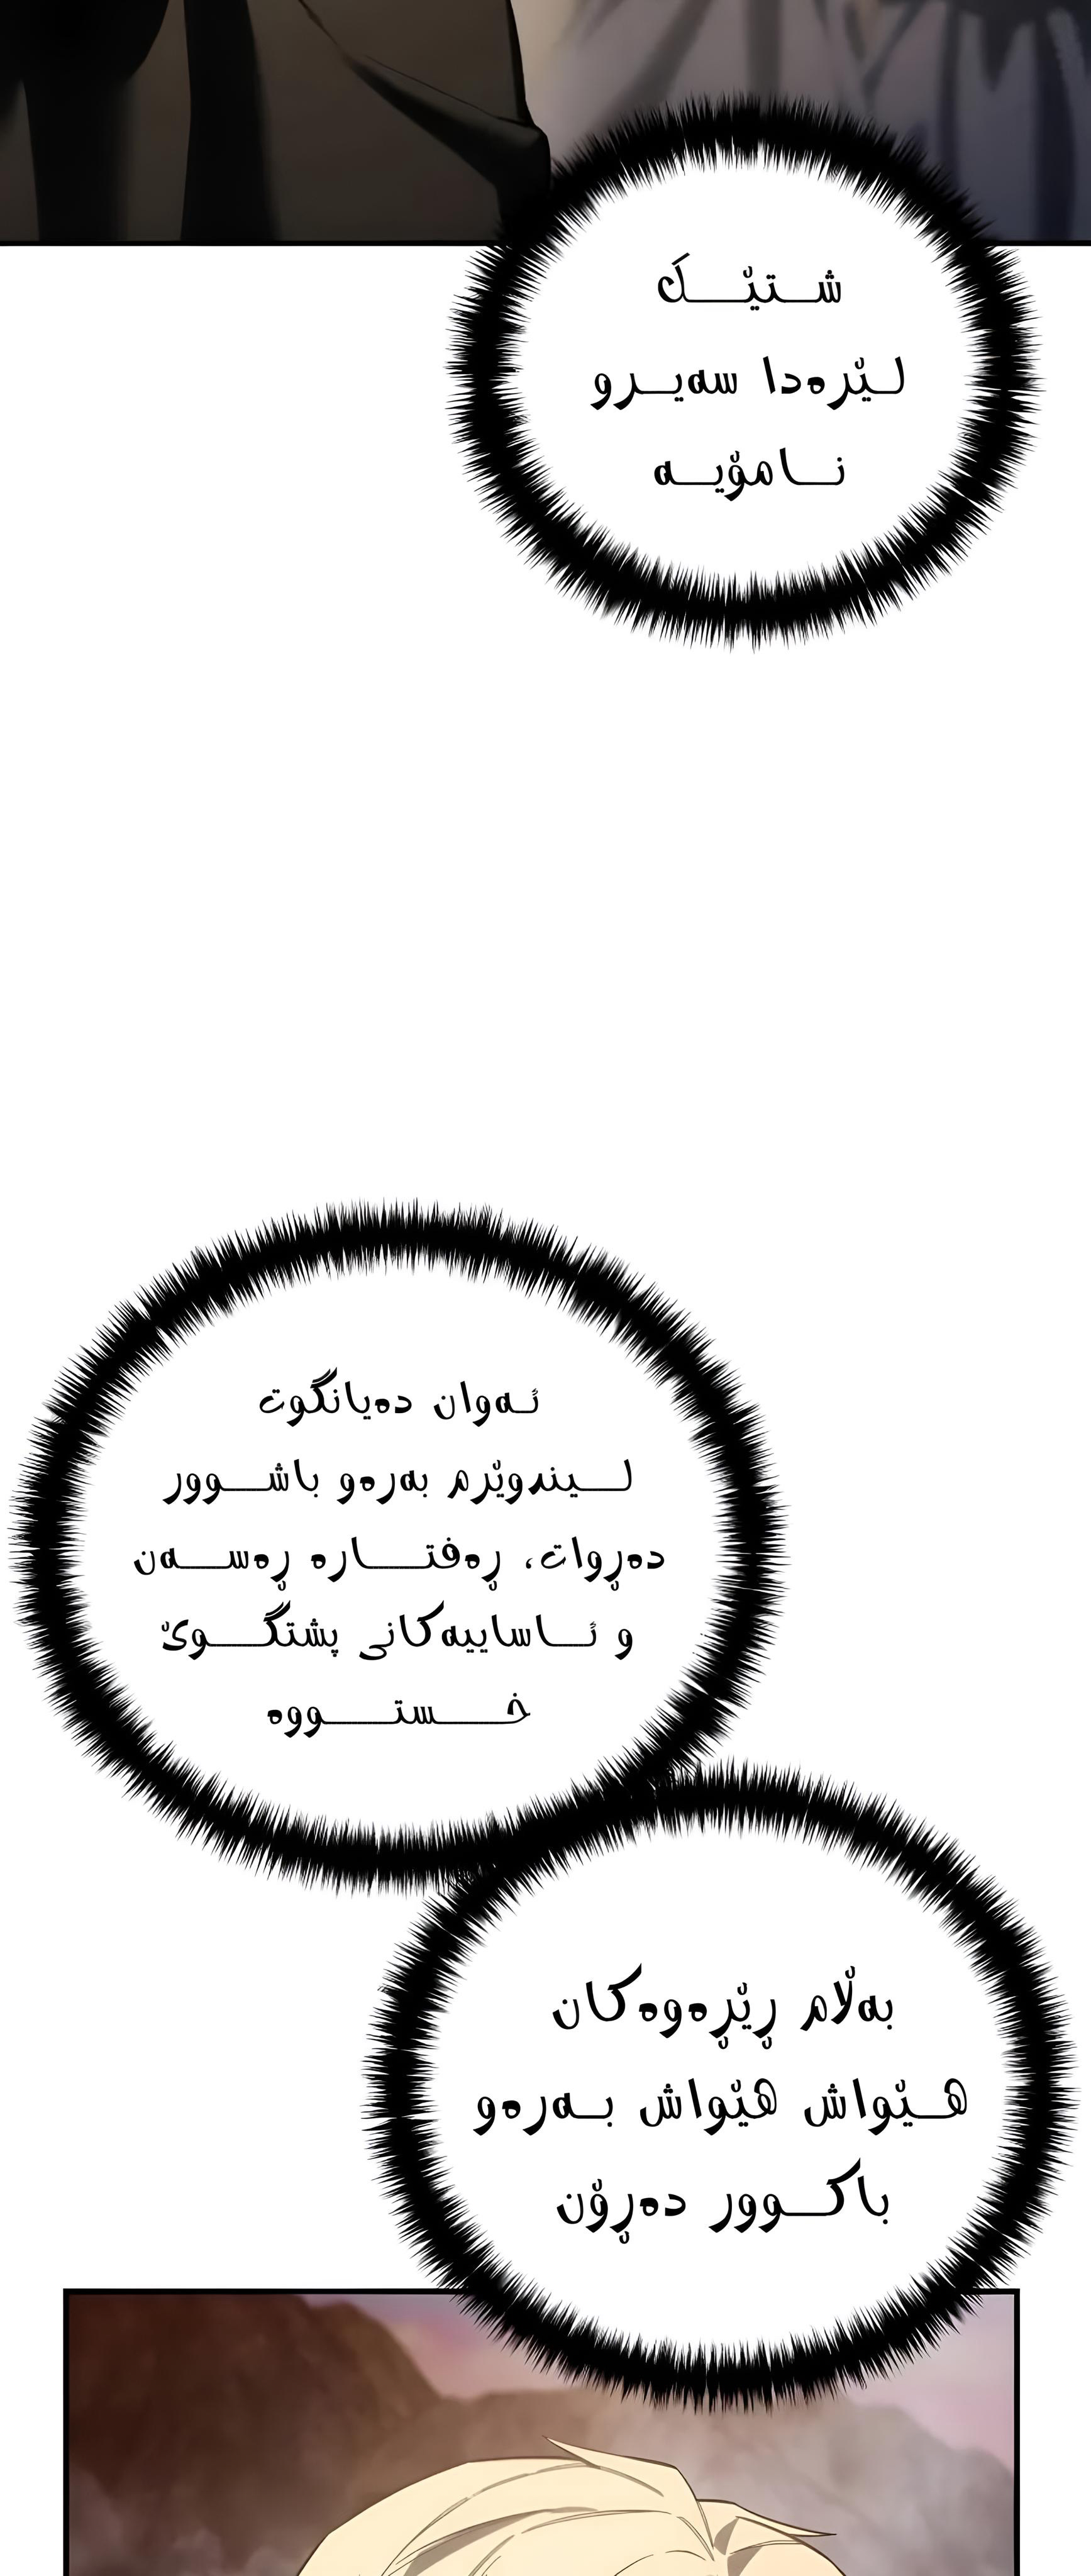 شتێک
لێرەدا سەیرو
نامۆیە
ئەوان دەیانگوت
لیندوێرم بەرەو باشوور
دەڕوات، ڕەفتارە ڕەسەن
و ئاساییەکانی پشتگوێ
خستووە
بەڵام ڕێڕەوەکان
هێواش هێواش بەرەو
باکوور دەڕۆن